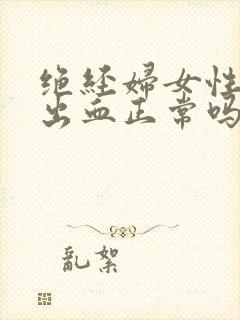 绝经婦女性
出血正常吗
亂絮